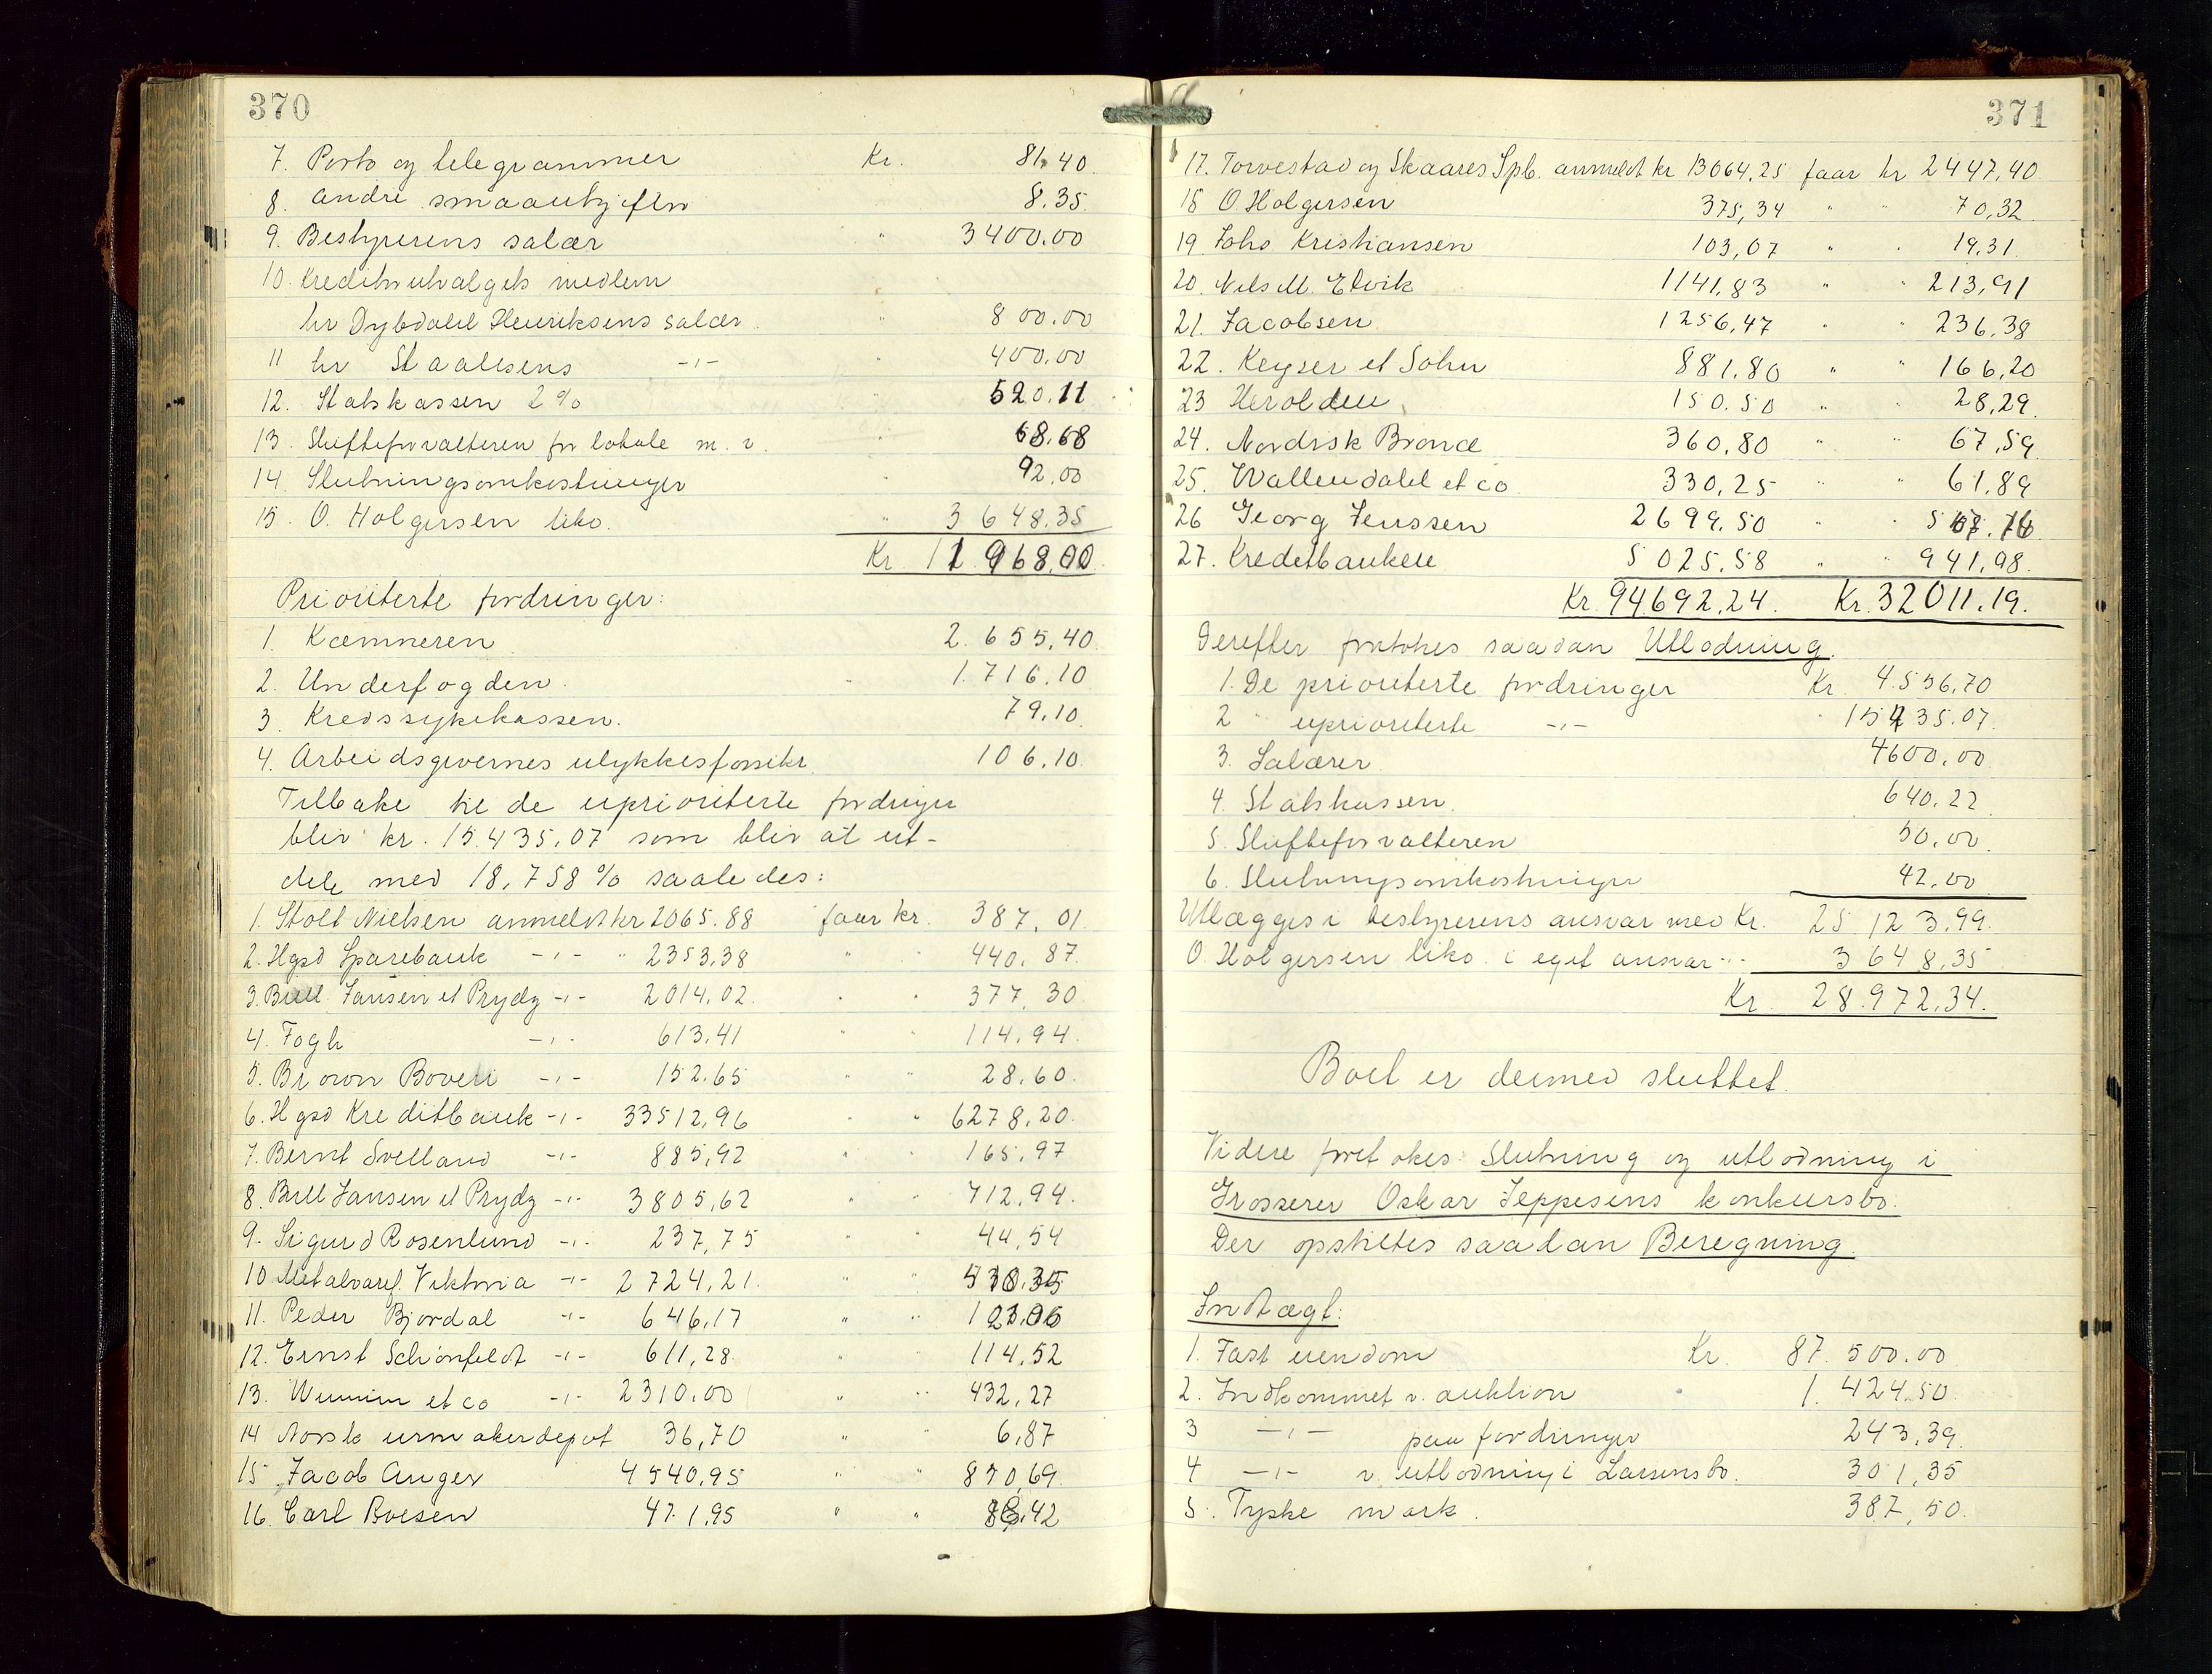 370
7. Porto og telegrammer Kr. 81.40
8. andre smaautgifter 8.35
9. Bestyrerens salær " 3400.00
10. Kreditorutvalgets medlem
hr Dybdahl Henriksens salær. " 800.00
11 hr Staalesens -"- " 400.00
12. Statskassen 2% " 520.11
13. Skifteforvalteren for lokale m. v. " 68.68
14. Slutningsomkostninger " 92.00
15. O. Holgersen liko. " 3648.35
Kr 11968.00
Prioriterte fordringer:
1. Kæmneren 2.655.40
2. Underfogden. 1.716.10
3. Kredssykekassen. 79.10
4. Arbeidsgivernes ulykkesforsikr. 106.10
Tilbake til de uprioriterte fordringer
blir kr. 15.435.07 som blir at ut-
dele med 18,758% saaledes:
1. Stolt Nielsen anmeldt kr 2065.88 faar kr. 387,01
2. Hgsd Sparebank -"- " 2353.38 " " 440.87
3. Bull Jansen et Prydz -"- 2014.02 " " 377,30
4. Fogh -"- 613.41 " " 114.94
5. Brown Boveri -"- 152.65 " " 28.60
6. Hgsd Kreditbank -"- 33512,96 " " 6278,20
7. Bernt Svelland -"- 885,92 " " 165,97
8. Bull Jansen et Prydz -"- 3805,62 " " 712.94
9. Sigurd Rosenlund -"- 237,75 " " 44,54
10. Metalvaref. Viktoria -"- 2724,21 " "
11. Peder Bjordal -"- 646,17 " "
12. Ernst Schönfeldt -"- 611,28 " 114,52
13. et co -"- 2310.00 " " 432,27
14 Norsk urmakerdepot 36,70 " " 6,87
15 Jacob Anger 4540.95 " "
16. Carl Boesen 471,95 " "
371
17. Torvestad og Skaares Spb. anmeldt kr 13064,25 faar kr 2447,40
18 O. Holgersen 375,34 " " 70,32
19 Johs Kristiansen 103,07 " " 19,31
20. Nils M. Elvik 1141,83 " " 213,91
21. Jacobsen 1256,47 " " 236,38
22. Keyser et Sohn 881.80 " " 166,20
23 Herolden 150.50 " " 28,29
24. Nordisk Bronce 360,80 " " 67,59
25. Wallendahl et co 330,25 " " 61,89
26 Georg Jenssen 2699,50 " "
27. Kreditbanken 5025,58 " " 941,98
Kr. 94692,24. Kr. 32011.19.
Derefter foretokes saadan Utlodning.
1. De prioriterte fordringer Kr 4.556,70
2 " uprioriterte -"- " 15435.07
3. Salærer 4600,00
4. Statskassen 640,22
5. Skifteforvalteren 50,00
6. Slutningsomkostninger 42,00
Utlægges i bestyrerens ansvar med Kr. 25.123,99.
O. Holgersen liko. i eget ansvar " 3648,35
Kr 28.972,34.
Boet er dermed sluttet.
Videre foretokes Slutning og utlodning i
Grosserer Oskar Jeppesens konkursbo.
Der opstiltes saadan Beregning.
Indtægt:
1. Fast eiendom Kr. 87.500.00
2. Indkommet v. auktion " 1.424.50
3 -"- paa fordringer 243,39
4 -"- v. utlodning i Larsens bo. 301,35
5. Tyske mark. 387,50